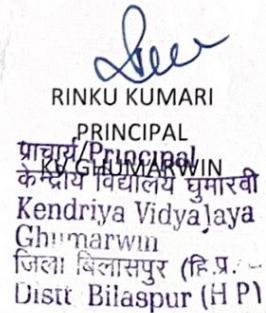 RINKU KUMARI
PRINCIPAL
प्राचार्य/Principal
KV GHUMARWIN
केन्द्रीय विद्यालय घुमारवीं
Kendriya Vidyalaya
Ghumarwin
जिला बिलासपुर (हि.प्र.
Distt Bilaspur (H P)